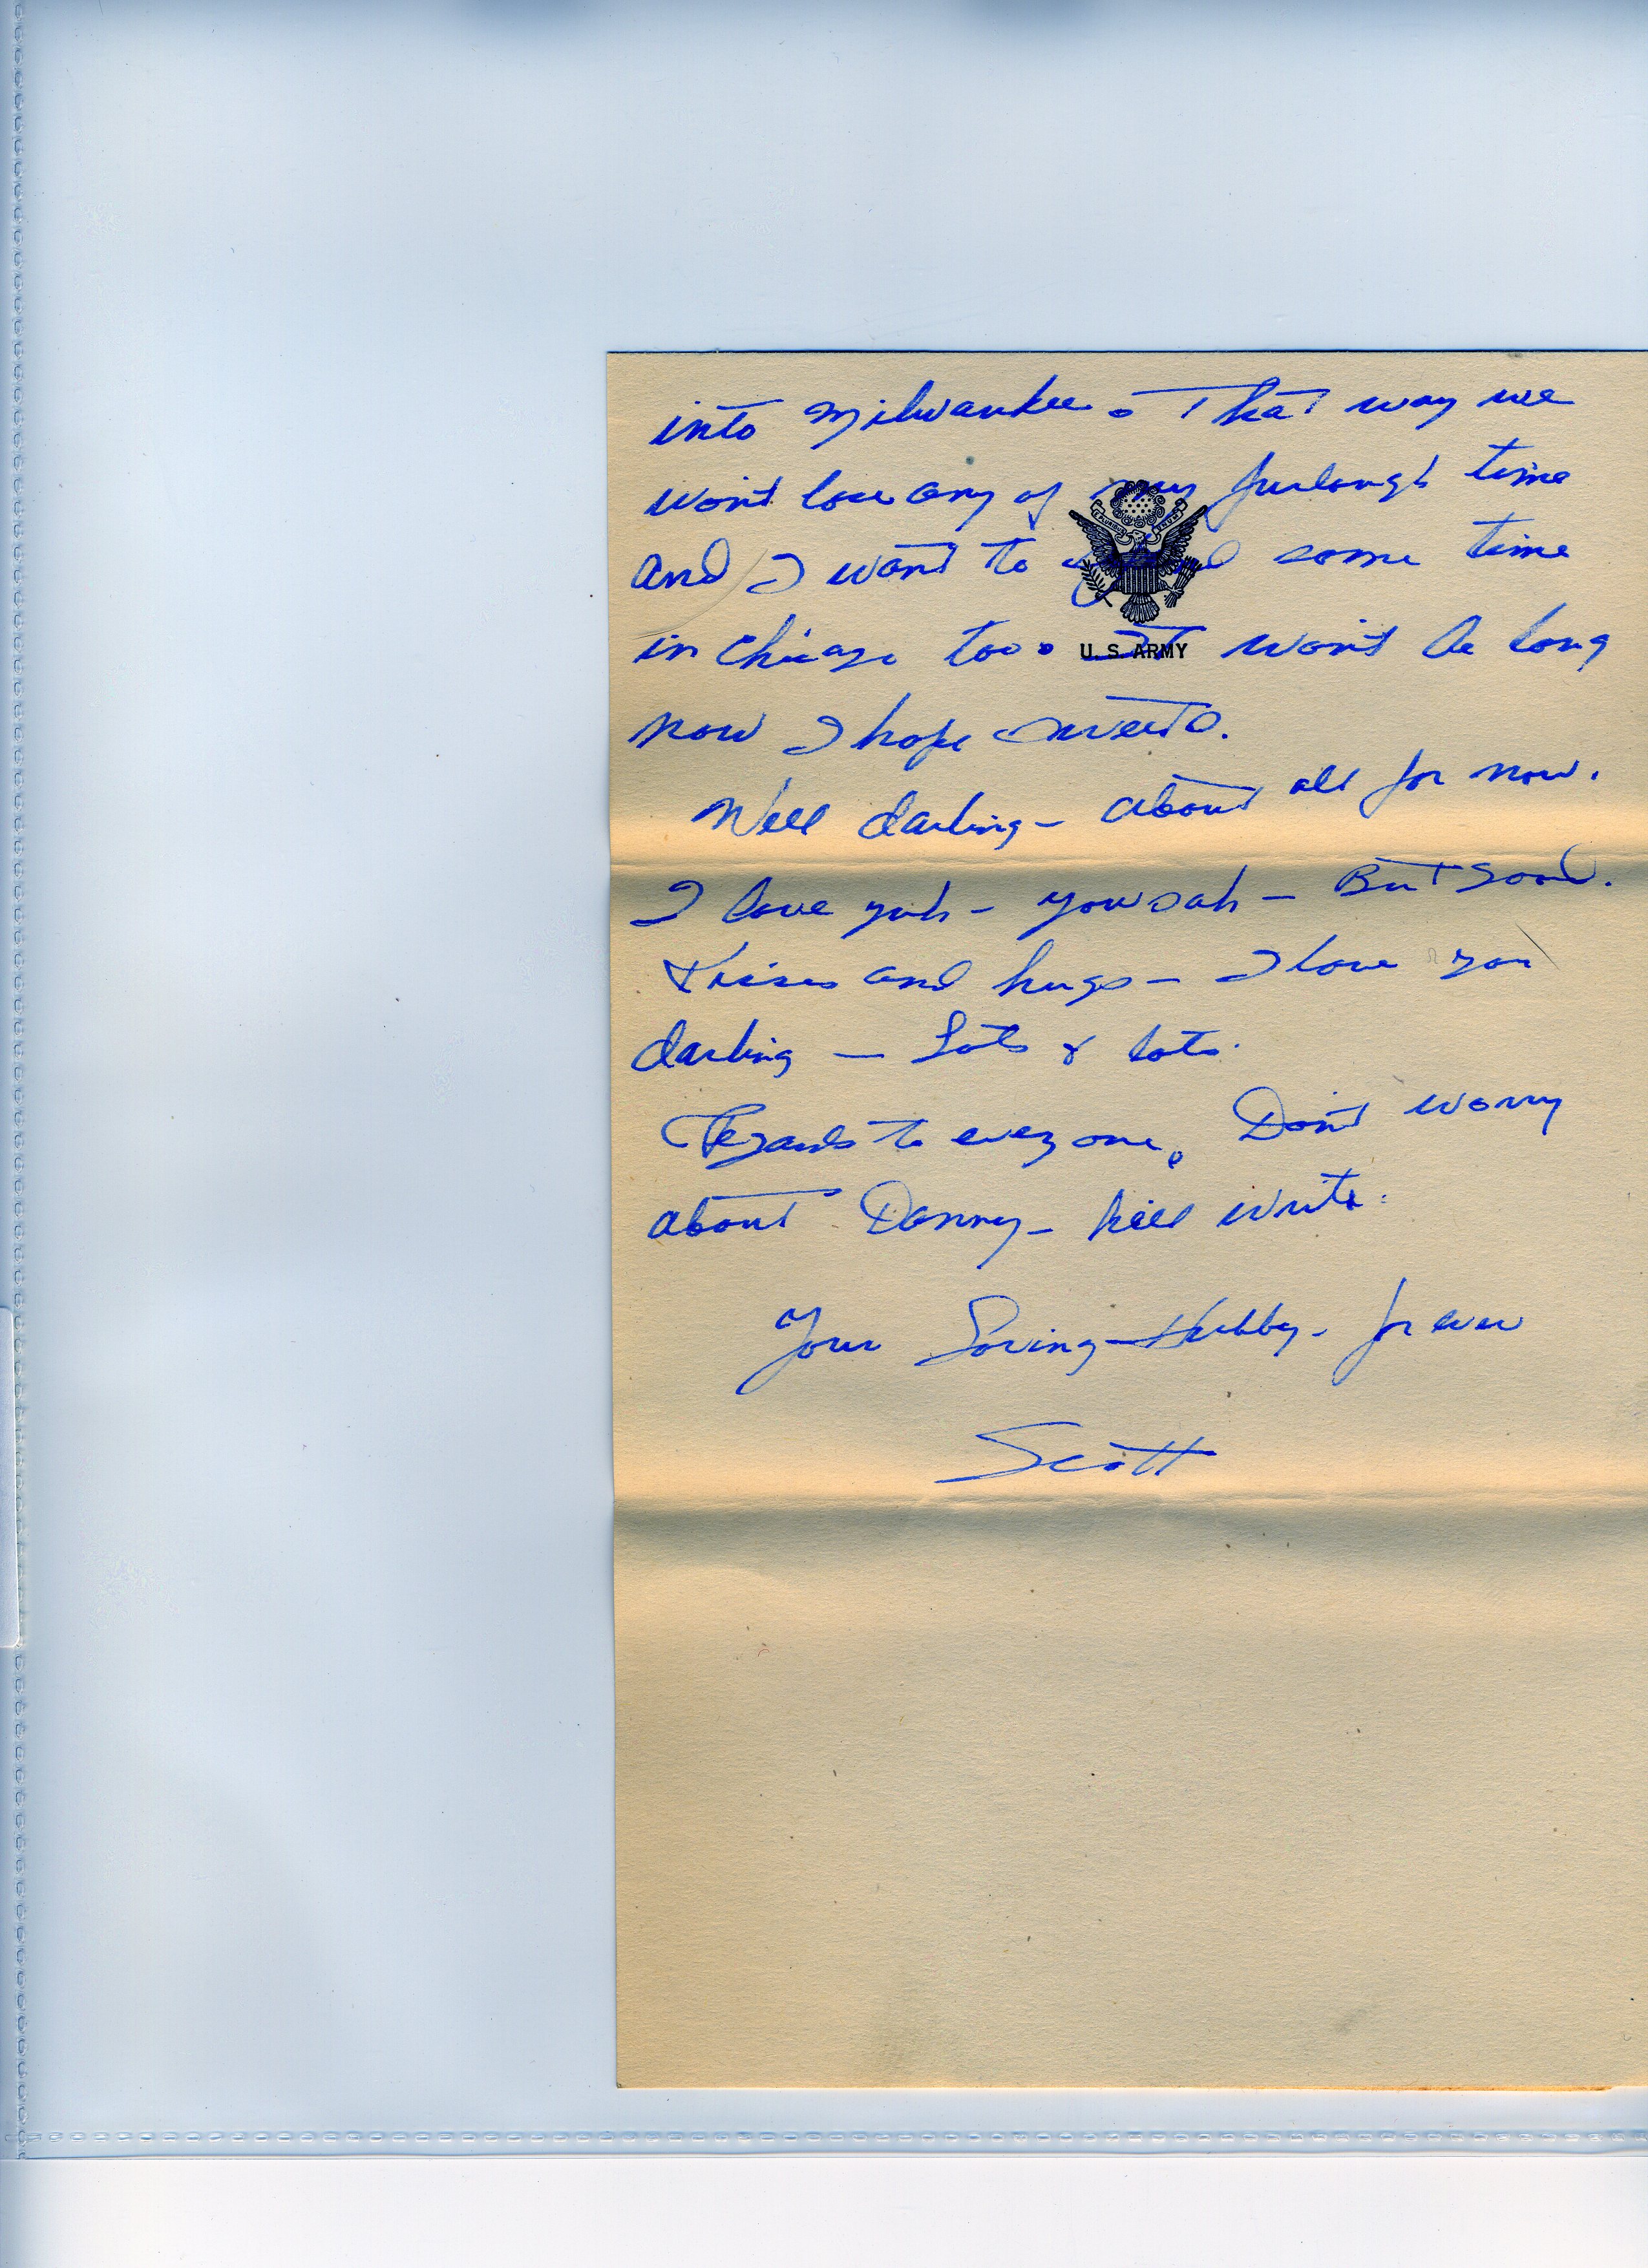 into Milwaukee. That way we
wont lose any of my furlough time
and I want to spend some time
in Chicago too. It wont be long
U. S. ARMY
now I hope sweets.
Well darling - about all for now.
I love yuh - yowsah - But Good.
Kisses and hugs - I love you
darling - Lots & lots.
Regards to everyone. Dont worry
about Danny - hell write.
Your Loving Hubby - forever
Scott